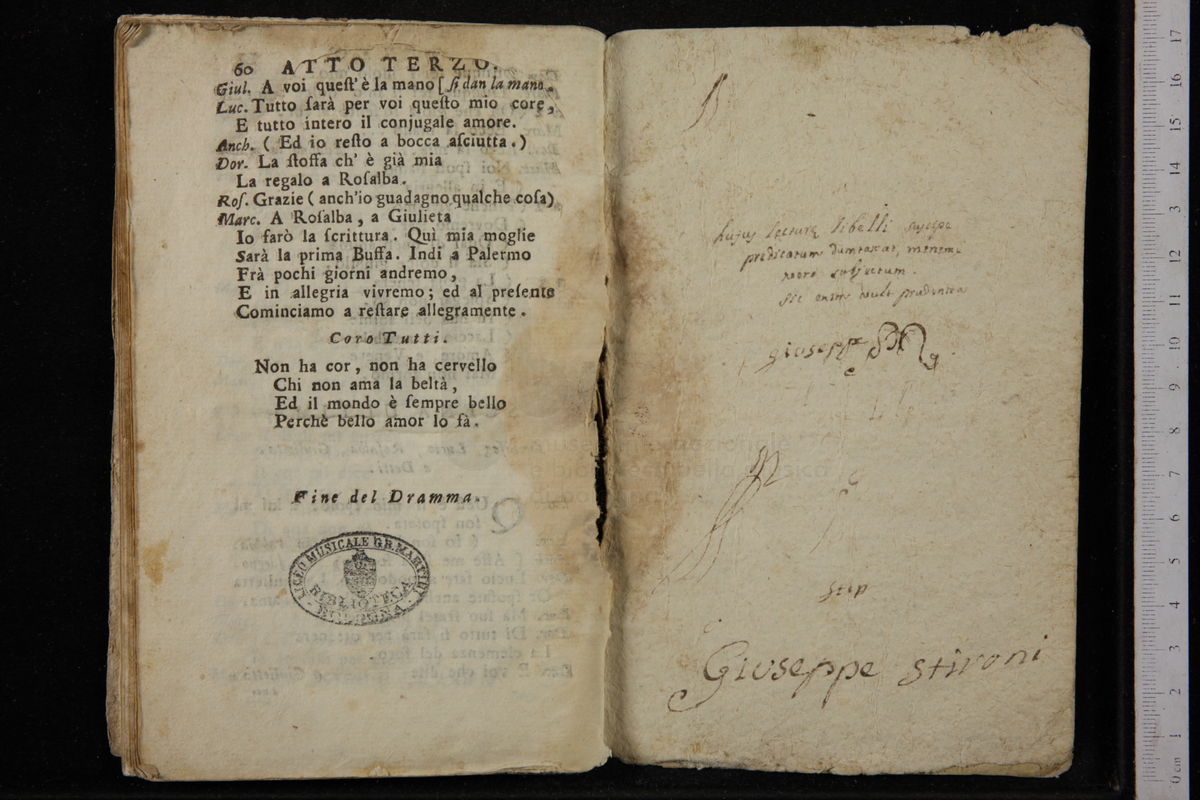 60 ATTO TERZO.
Giul. A voi queſt'è la mano [ ſi dan la mano.
Luc. Tutto ſarà per voi queſto mio core,
E tutto intero il conjugale amore.
Anch. ( Ed io reſto a bocca aſciutta. )
Dor. La ſtoffa ch' è già mia
La regalo a Roſalba.
Roſ. Grazie ( anch'io guadagno qualche coſa)
Marc. A Roſalba, a Giulieta
Io farò la ſcrittura. Quì mia moglie
Sarà la prima Buffa. Indi a Palermo
Frà pochi giorni andremo,
E in allegria vivremo; ed al preſente
Cominciamo a reſtare allegramente.
Coro Tutti.
Non ha cor, non ha cervello
Chi non ama la beltà,
Ed il mondo è ſempre bello
Perchè bello amor lo fà.
Fine del Dramma.
LICEO MUSICALE G.B. MARTINI
BIBLIOTECA
BOLOGNA
libelli
prudentia
Giuseppe
Giuseppe Stironi
17
16
15
14
13
12
11
10
9
8
7
6
5
4
3
2
1
0 cm